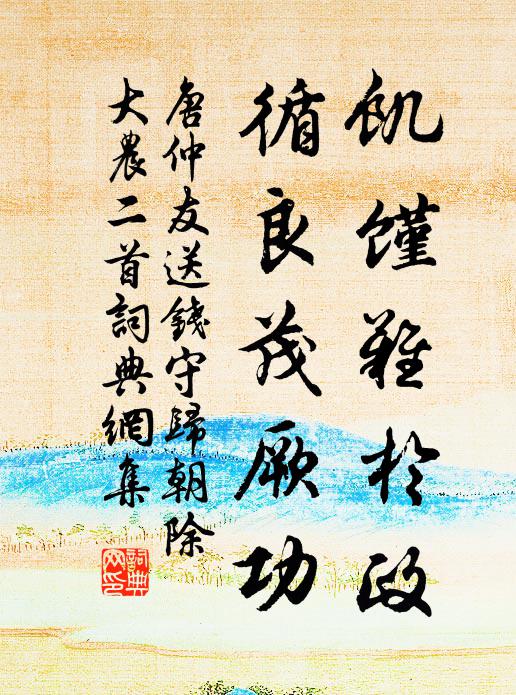 飢饉難於政
循良茂厥功
唐仲友送錢守歸朝除
大農二首詞典網集